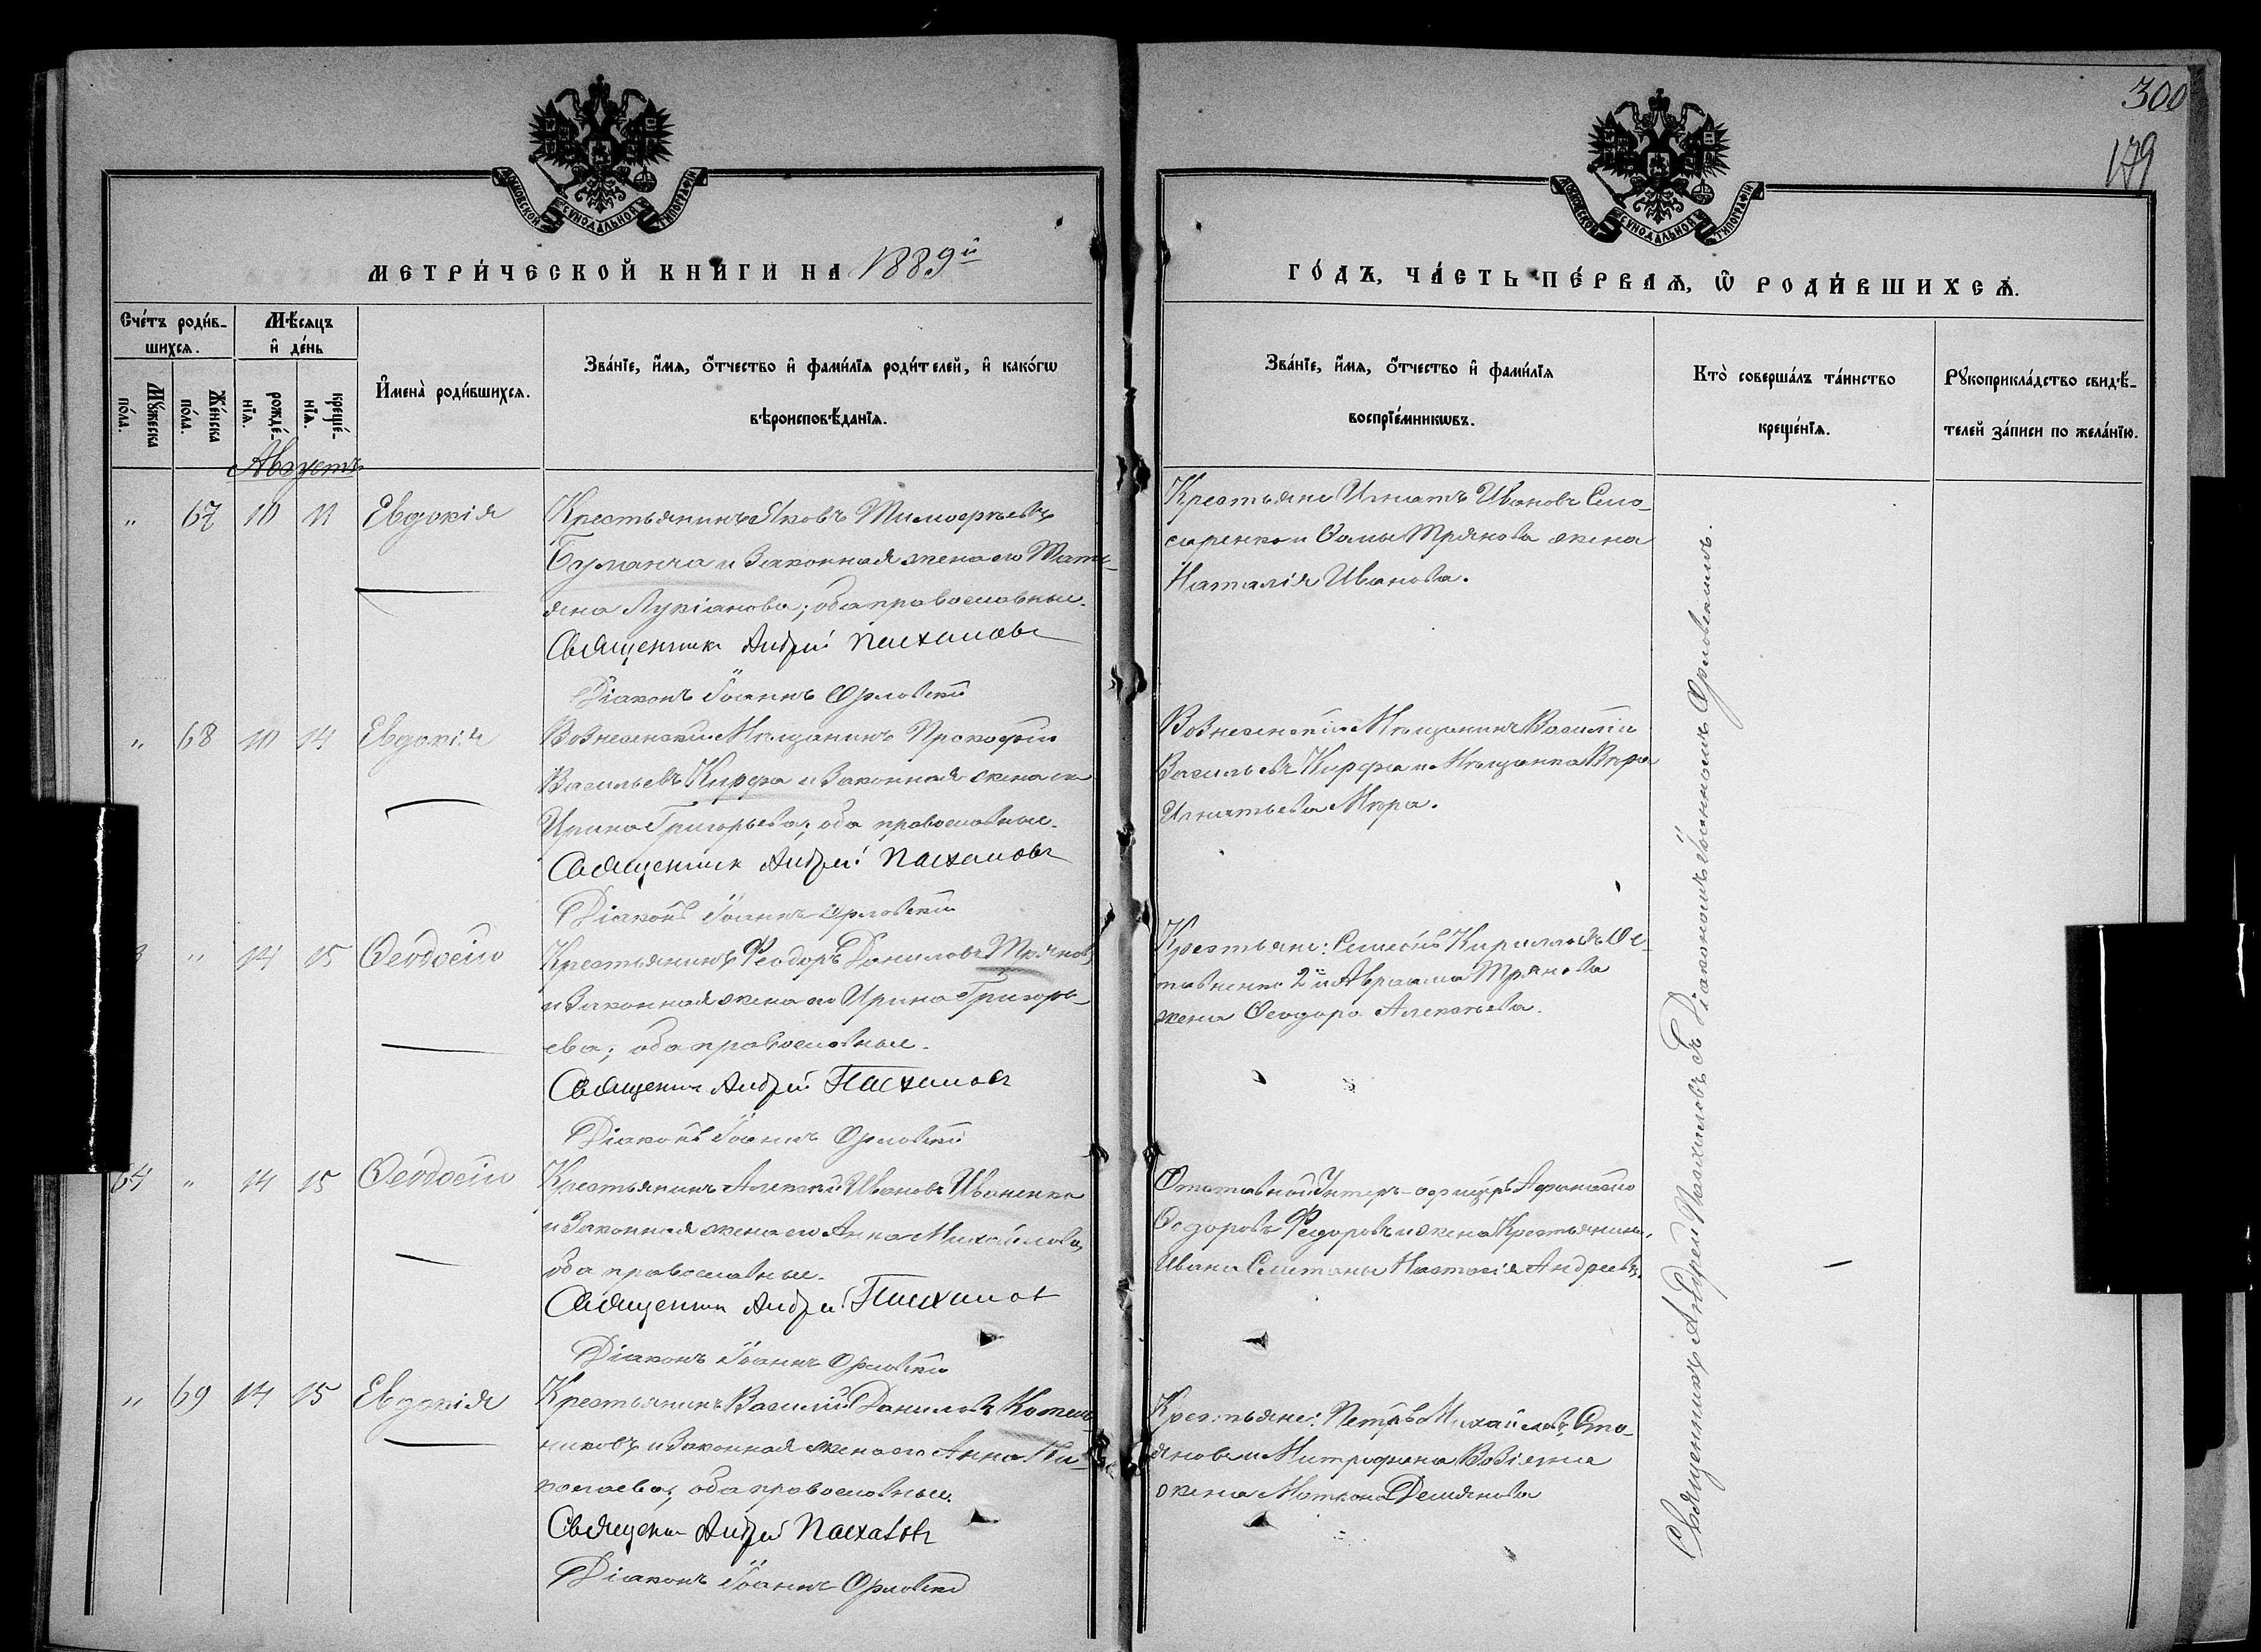 300
179
МОСКОВСКОЙ СѴНОДАЛЬНОЙ ТИПОГРАФІИ
МОСКОВСКОЙ СѴНОДАЛЬНОЙ ТИПОГРАФІИ
МЕТРИ́ЧЕСКОЙ КНИ́ГИ НА 1889й
ГО́ДЪ, ЧА́СТЬ ПЕ́РВАѦ, Ѡ҆ РОДИ́ВШИХСѦ.
Сче́тъ роди́в-
шихсѧ.
Мѣ́сѧцъ
и҆ де́нь
Мꙋ́жеска
по́ла.
Же́нска
по́ла.
рожде́-
нїѧ.
креще́-
нїѧ.
И҆мена̀ роди́вшихсѧ.
Зва́нїе, и҆́мѧ, ѻ҆́тчество и҆ фами́лїѧ роди́телей, и҆ како́гѡ
вѣроисповѣ́данїѧ.
Зва́нїе, и҆́мѧ, ѻ҆́тчество и҆ фами́лїѧ
воспрїе́мникѡвъ.
Кто̀ соверша́лъ та́инство
креще́нїѧ.
Рꙋкоприкла́дство свидѣ́-
телей за́писи по жела́нїю.
Августъ
" 67 10 11 Евдокія
Крестьянинъ Яковъ Тимофѣевъ
и законная жена его Тать-
яна Лукіанова; оба православные.
Священникъ Андрей Пасхаловъ
Діаконъ Іоаннъ Орловскій
Крестьяне Игнатъ Ивановъ Сло-
саренко и Фомы Трянова жена
Наталія Иванова.
" 68 10 14 Евдокія
Вознесенскій Мѣщанинъ Прокофій
Васильевъ Кирфа и законная жена его
Ирина Григорьева; оба православные.
Священник Андрей Пасхаловъ
Діаконъ Іоаннъ Орловскій
Вознесенскій Мѣщанинъ Василій
Васильевъ Кирфа и Мѣщанка Вѣра
Игнатьева Мюра.
3 " 14 15 Ѳеодосій
Крестьянинъ Ѳеодоръ Даниловъ Тряновъ
и законная жена его Ирина Григорь-
ева; оба православные.
Священник Андрей Пасхаловъ
Діаконъ Іоаннъ Орловскій
Крестьяне: Семенъ Кирилловъ
2й и Авраама Трянова
жена Ѳеодора Алексѣева.
64 " 14 15 Ѳеодосій
Крестьянинъ Алексѣй Ивановъ Иваненко
и законная жена его Анна Михайлова,
оба православные.
Священник Андрей Пасхалов
Діаконъ Іоаннъ Орловскій
Отставной Унтеръ-офицеръ Афанасій
Ѳедоровъ Федоровъ и жена Крестьянина
Ивана Сметаны Настасія Андреева.
" 69 14 15 Евдокія
Крестьянинъ Василій Даниловъ Котель-
никовъ и законная жена его Анна Ни-
колаева; оба православные.
Священник Андрей Пасхаловъ
Діаконъ Іоаннъ Орловскій
Крестьяне: Петръ Михайловъ Сто-
яновъ и Митрофана Возіяна
жена Матрона Демянова
Священникъ Андрей Пасхаловъ съ Діакономъ Іоанномъ Орловскимъ.